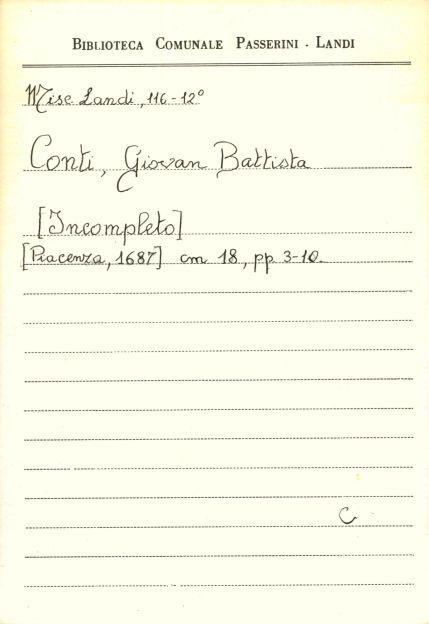 BIBLIOTECA COMUNALE PASSERINI - LANDI
Misc Landi, 116-12°
Conti, Giovan Battista
[Incompleto]
[Piacenza, 1687] cm 18, pp. 3-10.
C